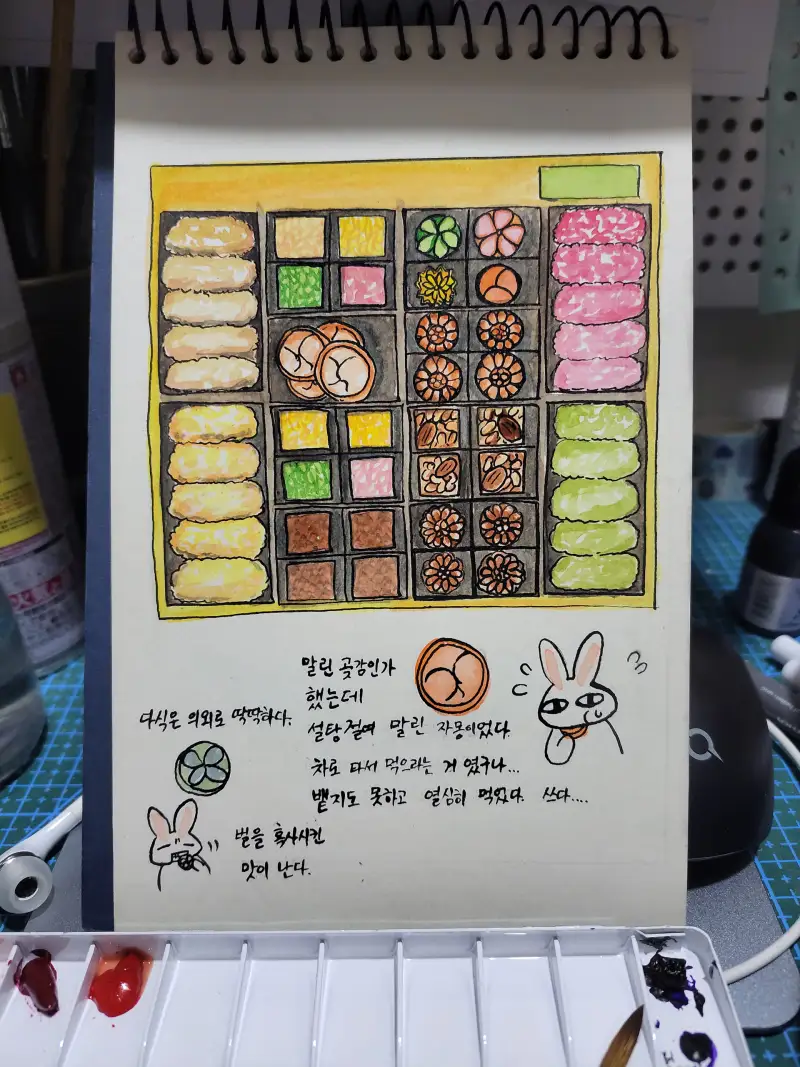 말린 곶감인가
했는데
설탕절여 말린 자몽이었다.
차로 타서 먹으라는 거 였구나...
뱉지도 못하고 열심히 먹었다. 쓰다....
다식은 의외로 딱딱하다.
벌을 혹사시킨
맛이 난다.